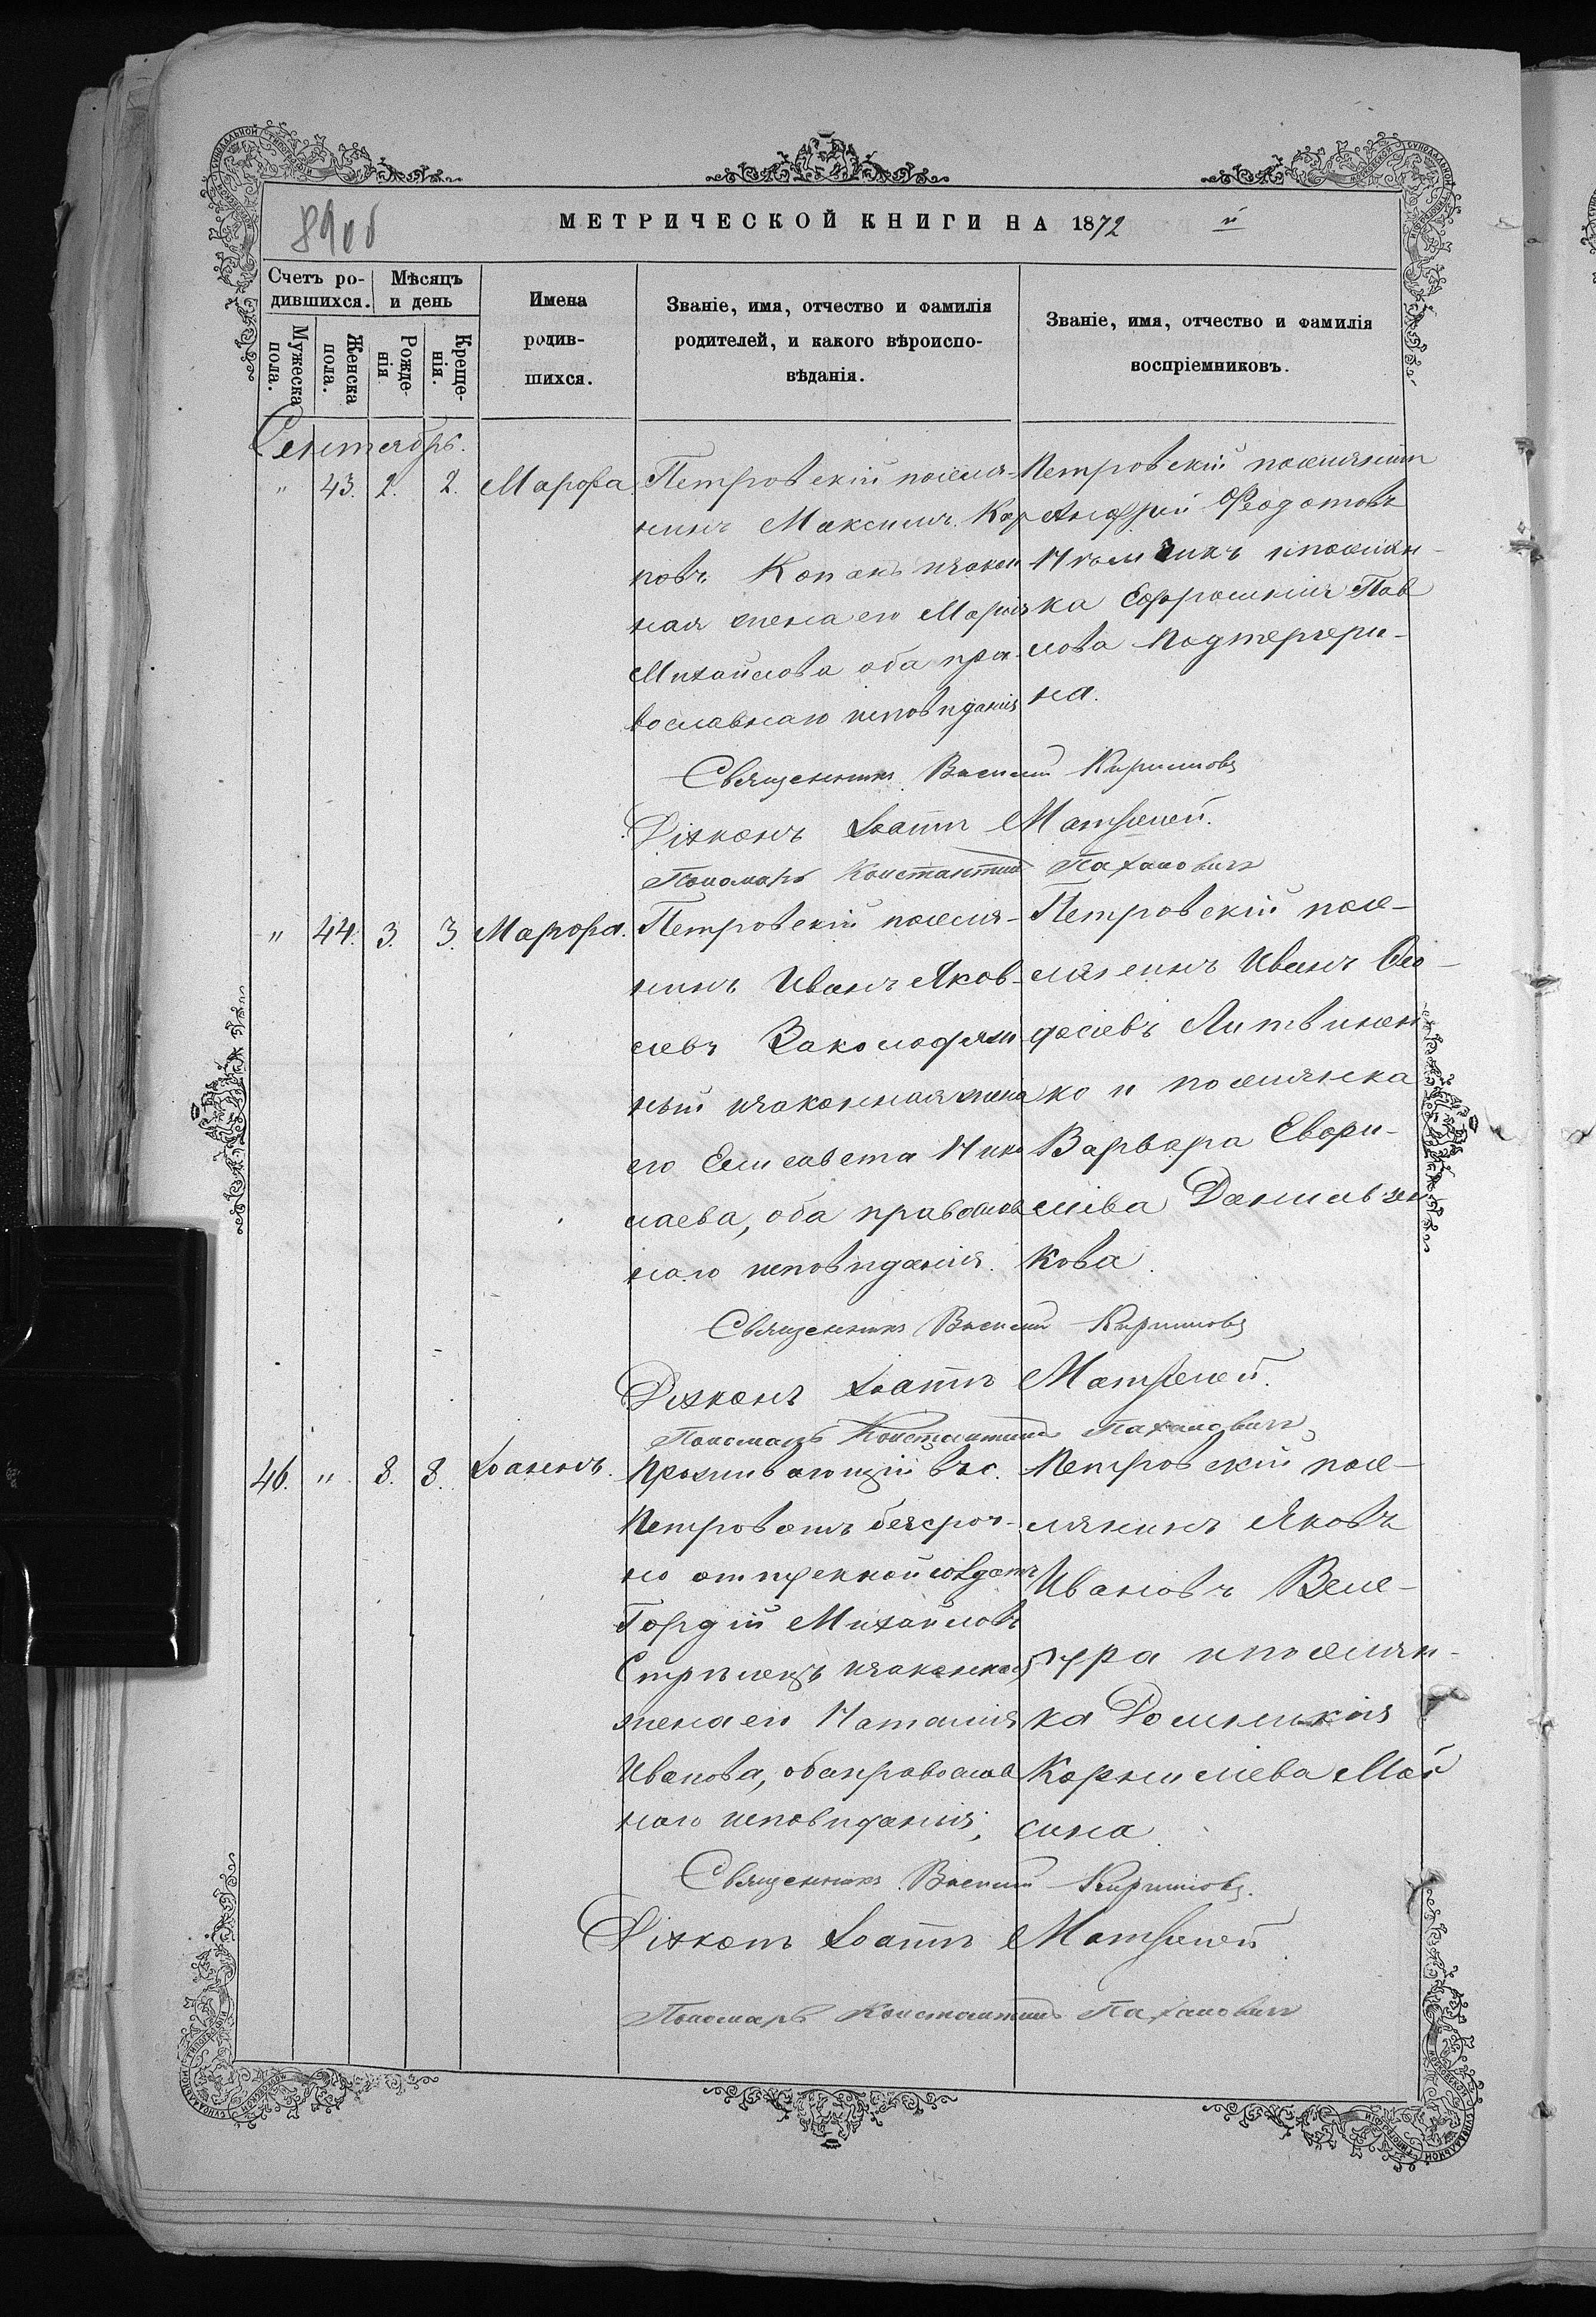 89об
МЕТРИЧЕСКОЙ КНИГИ НА 1872 й
Счетъ ро-
дившихся.
Мѣсяцъ
и день
Имена
родив-
шихся.
Званіе, имя, отчество и фамилія
родителей, и какого вѣроиспо-
вѣданія.
Званіе, имя, отчество и фамилія
воспріемниковъ.
Мужеска
пола.
Женска
пола.
Рожде-
нія
Креще-
нія.
Сентябрь.
" 43. 2. 2. Марфа
Петровскій поселя-
нинъ Максимъ Кар
повъ Копанъ изакон
ная жена его Марія
Михайлова оба пра-
вославнаго исповѣданія
Петровскій поселянинъ
Андрей Феодотовъ
ипоселян-
ка Евфросинія Пав
лова
на.
Священникъ Василій Кириловъ
Діаконъ Іоаннъ Матвеей.
Пономарь Константинъ Пахаловичъ
" 44. 3. 3. Марфа.
Петровскій поселя-
нинъ Иванъ Яков-
левъ Заколодяж
ный изаконная жена
его Елисавета Нико
лаева, оба православ
наго исповѣданія.
Петровскій посе-
лянинъ Иванъ Ѳео-
досіевъ Литвинен
ко и поселянка
Варвара Еври-
міева Данильчен
кова.
Священникъ Василій Кириловъ
Діаконъ Іоаннъ Матвеей.
Пономарь Константинъ Пахаловичъ
46. " 8. 8. Іоаннъ.
Проживающій въ с.
Петровомъ безсроч-
но отпускной солдатъ
Гордій Михайловъ
Стрѣлецъ изаконная
жена его Наталія
Иванова, оба православ
наго исповѣданія.
Петровскій посе-
лянинъ Яковъ
Ивановъ Веле-
гура ипоселян-
ка Домникія
Корниліева Мой
сина.
Священникъ Василій Кириловъ.
Діаконъ Іоаннъ Матвеей.
Пономарь Константинъ Пахаловичъ